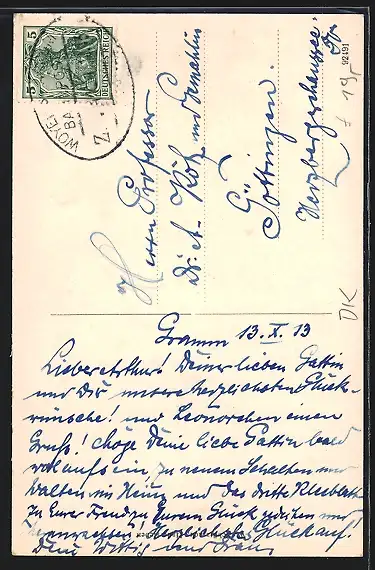 5 DEUTSCHES REICH 5
WOYENS
BAHNPOST
Z.
92491
Herrn Professor
Dr. et. Köz und Gemahlin
Göttingen.
Herzbergerchaussee.
Gramm 13. X. 13
Lieber Arthur! Deiner lieben Gattin
und Dir unsere herzlichsten Glück-
wünsche! und Leonorchen einen
Gruß! Möge Deine liebe Gattin bald
wohlauf sein zu neuem Schalten und
Walten im Heim und das dritte Kleeblatt
zu Eurer Freud zu Eurem Glück gedeihen und
Herzlichstes Glückauf!
Dein und Frau
DK